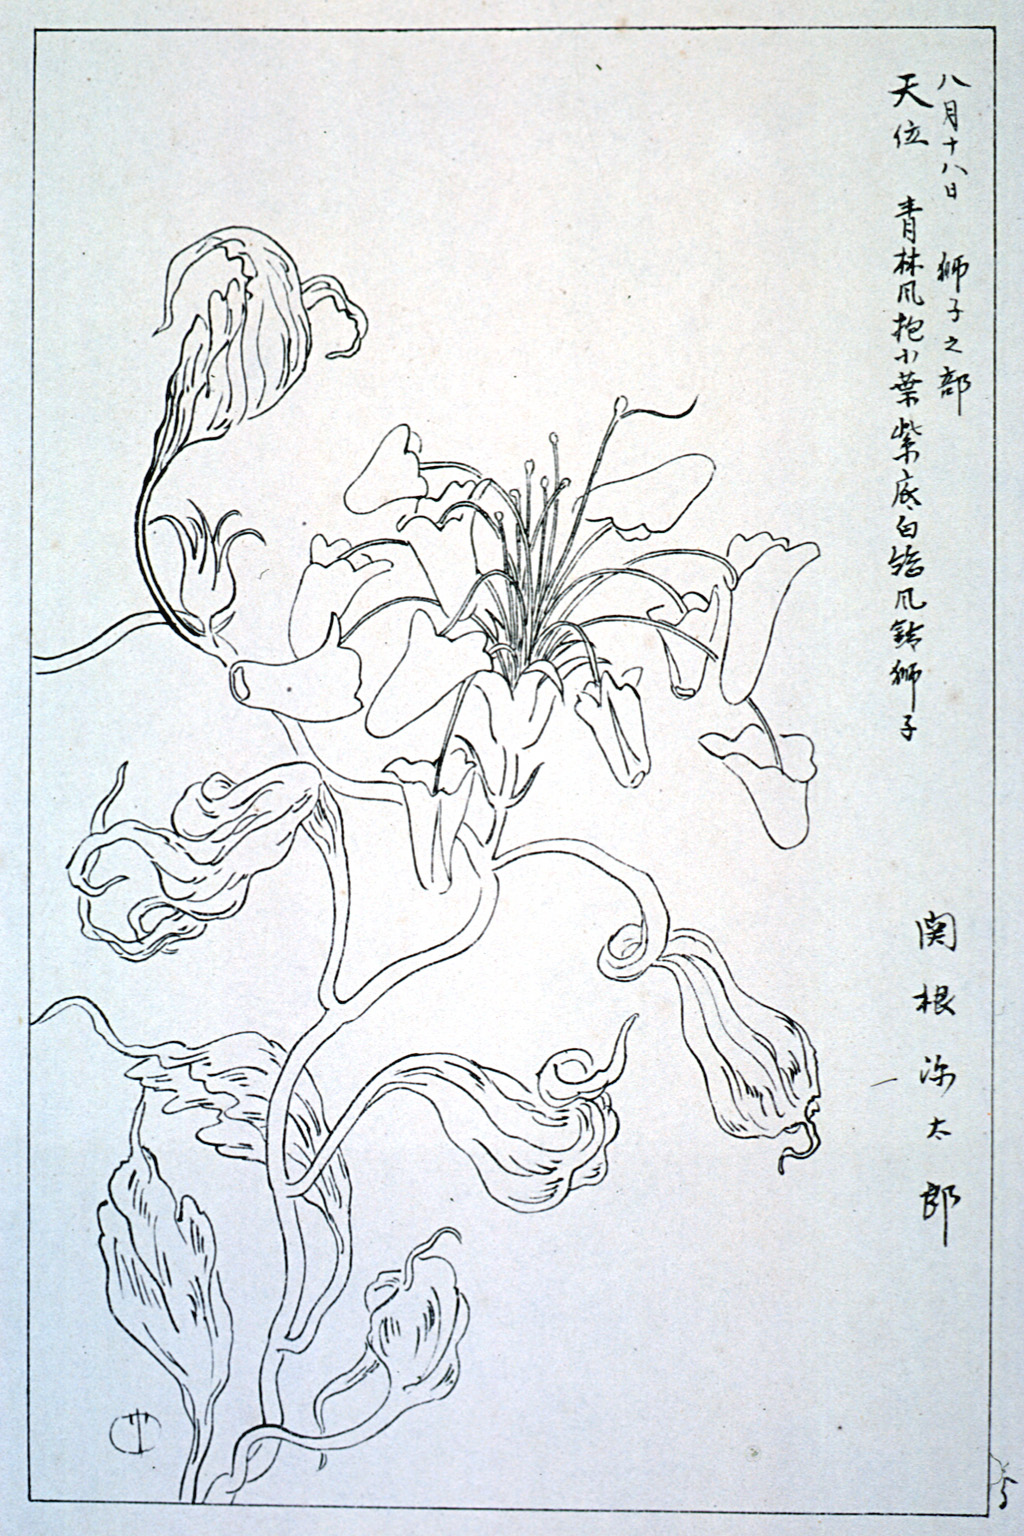 八月十八日 獅子之部
天位 青林風抱小葉紫底白總風鈴獅子
関根弥太郎